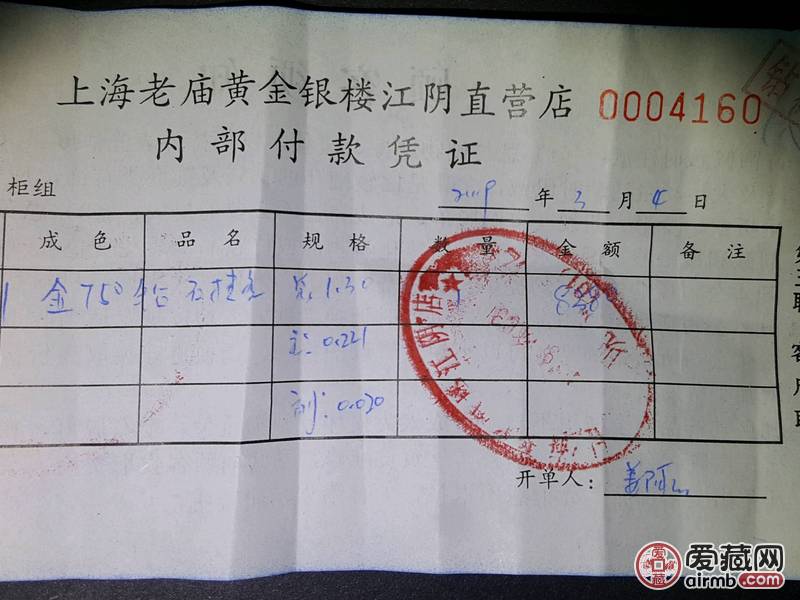 上海老庙黄金银楼江阴直营店 0004160
内部付款凭证
柜组 2009 年 3 月 4 日
成色 品名 规格 数量 金额 备注
金750 钻石挂件 总1.30 1
主:0.221
副:0.020
江阴店
开单人:
爱藏网
airmb.com